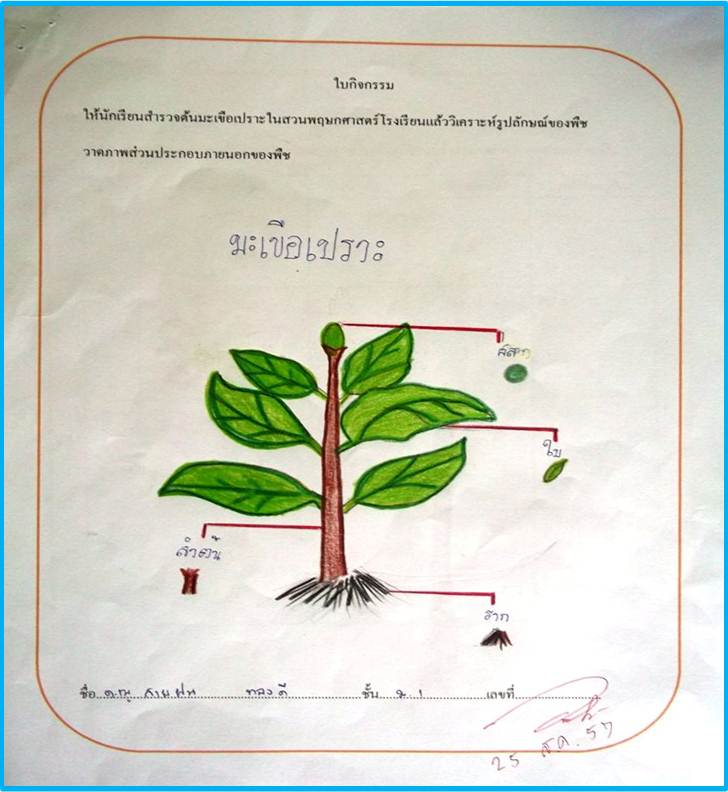 ใบกิจกรรม
ให้นักเรียนสำรวจต้นมะเขือเปราะในสวนพฤกษศาสตร์โรงเรียนแล้ววิเคราะห์รูปลักษณ์ของพืช
วาดภาพส่วนประกอบภายนอกของพืช
มะเขือเปราะ
ใบ
ลำต้น
ราก
ชื่อ ชั้น เลขที่
25